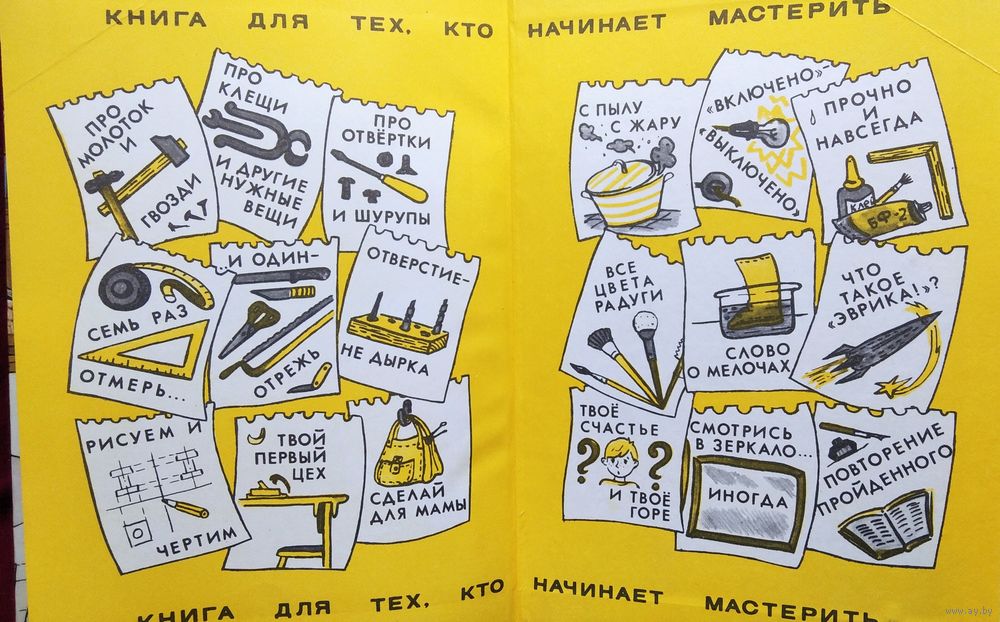 КНИГА ДЛЯ ТЕХ, КТО НАЧИНАЕТ МАСТЕРИТЬ
ПРО
МОЛОТОК
И
ГВОЗДИ
ПРО
КЛЕЩИ
И ДРУГИЕ
НУЖНЫЕ
ВЕЩИ
ПРО
ОТВЁРТКИ
И ШУРУПЫ
СЕМЬ РАЗ
ОТМЕРЬ...
И ОДИН-
ОТРЕЖЬ
ОТВЕРСТИЕ-
НЕ ДЫРКА
РИСУЕМ И
ЧЕРТИМ
ТВОЙ
ПЕРВЫЙ
ЦЕХ
СДЕЛАЙ
ДЛЯ МАМЫ
С ПЫЛУ
С ЖАРУ
«ВКЛЮЧЕНО»-
«ВЫКЛЮЧЕНО»
ПРОЧНО
И
НАВСЕГДА
КЛЕЙ
БФ-2
ВСЕ
ЦВЕТА
РАДУГИ
СЛОВО
О МЕЛОЧАХ
ЧТО
ТАКОЕ
«ЭВРИКА!»?
ТВОЁ
СЧАСТЬЕ
? ?
И ТВОЁ
ГОРЕ
СМОТРИСЬ
В ЗЕРКАЛО...
ИНОГДА
ПОВТОРЕНИЕ
ПРОЙДЕННОГО
КНИГА ДЛЯ ТЕХ, КТО НАЧИНАЕТ МАСТЕРИТЬ
www.ay.by